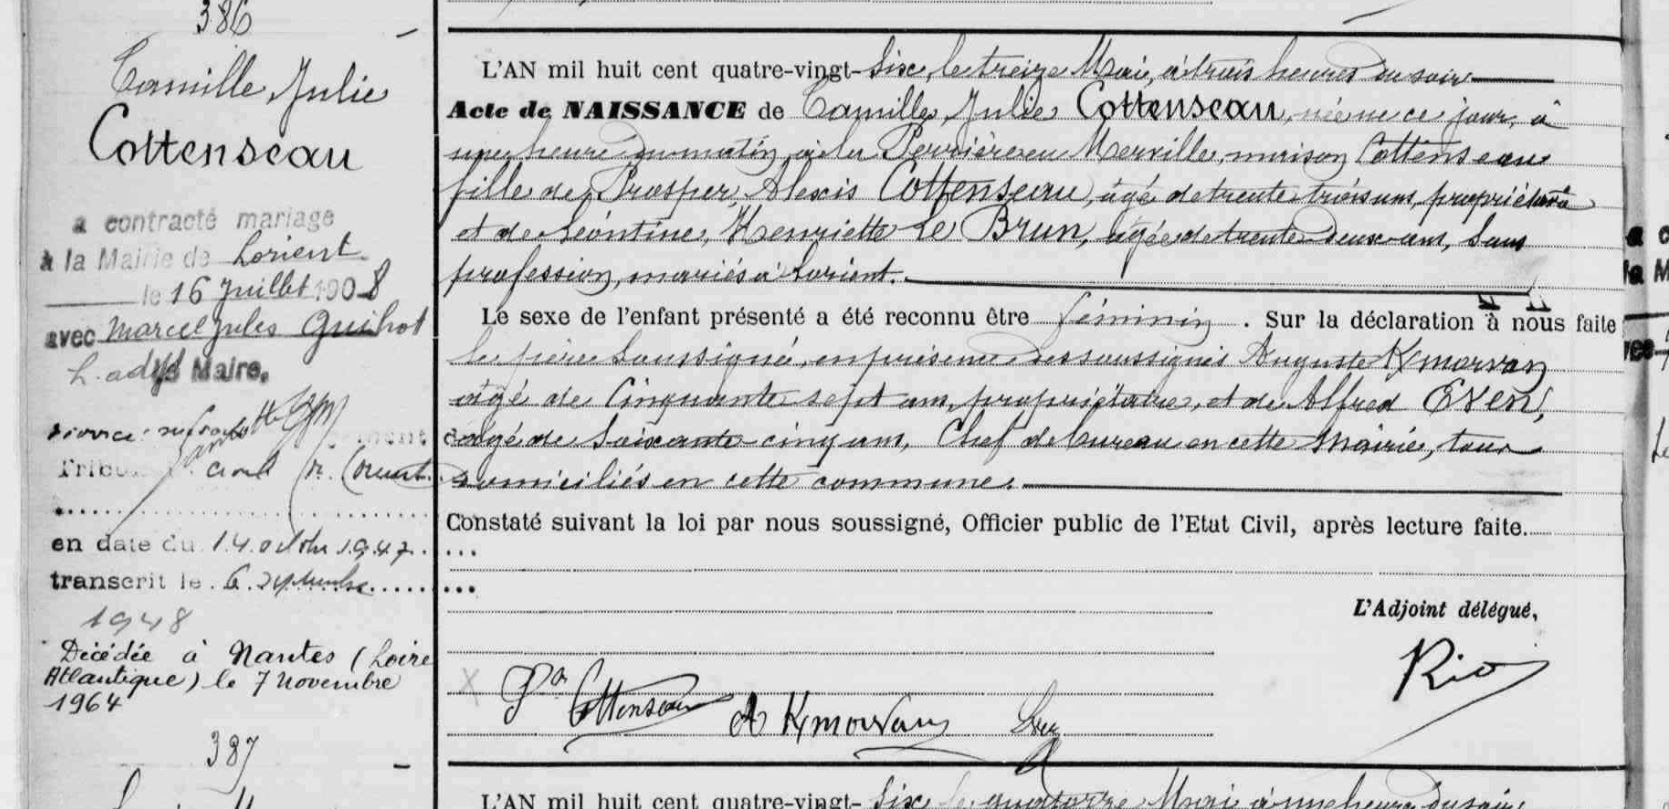 386
Camille, Julie
Cottenseau
a contracté mariage
à la Mairie de Lorient
le 16 Juillet 1908
avec Marcel Jules Guihot
Maire,
divorcés
Tribu civil de Lorient
en date du 14 octobre 1947
transcrit le 6 septembre
1948
Décédée à Nantes (Loire
Atlantique) le 7 Novembre
1964
387
L'AN mil huit cent quatre-vingt-Six, le treize Mai, à trois heures du soir
Acte de NAISSANCE de Camille, Julie Cottenseau, née ce jour, à
une heure du matin, à la Perrière en Merville, maison Cottenseau
fille de Prosper, Alexis Cottenseau, âgé de trente trois ans, propriétaire
et de Léontine, Henriette Le Brun, âgée de trente-deux ans, Sans
profession, mariés à Lorient.
Le sexe de l'enfant présenté a été reconnu être féminin. Sur la déclaration à nous faite
le père Soussigné, en présence des soussignés Auguste Kmorvan
âgé de Cinquante sept ans, propriétaire, et de Alfred Even,
âgé de Soixante-cinq ans, Chef de bureau en cette Mairie, tous
domiciliés en cette commune.
Constaté suivant la loi par nous soussigné, Officier public de l'Etat Civil, après lecture faite.
L'Adjoint délégué,
Rio
Cottenseau
A Kmorvan
L'AN mil huit cent quatre-vingt-Six le quatorze Mai à une heure du soir